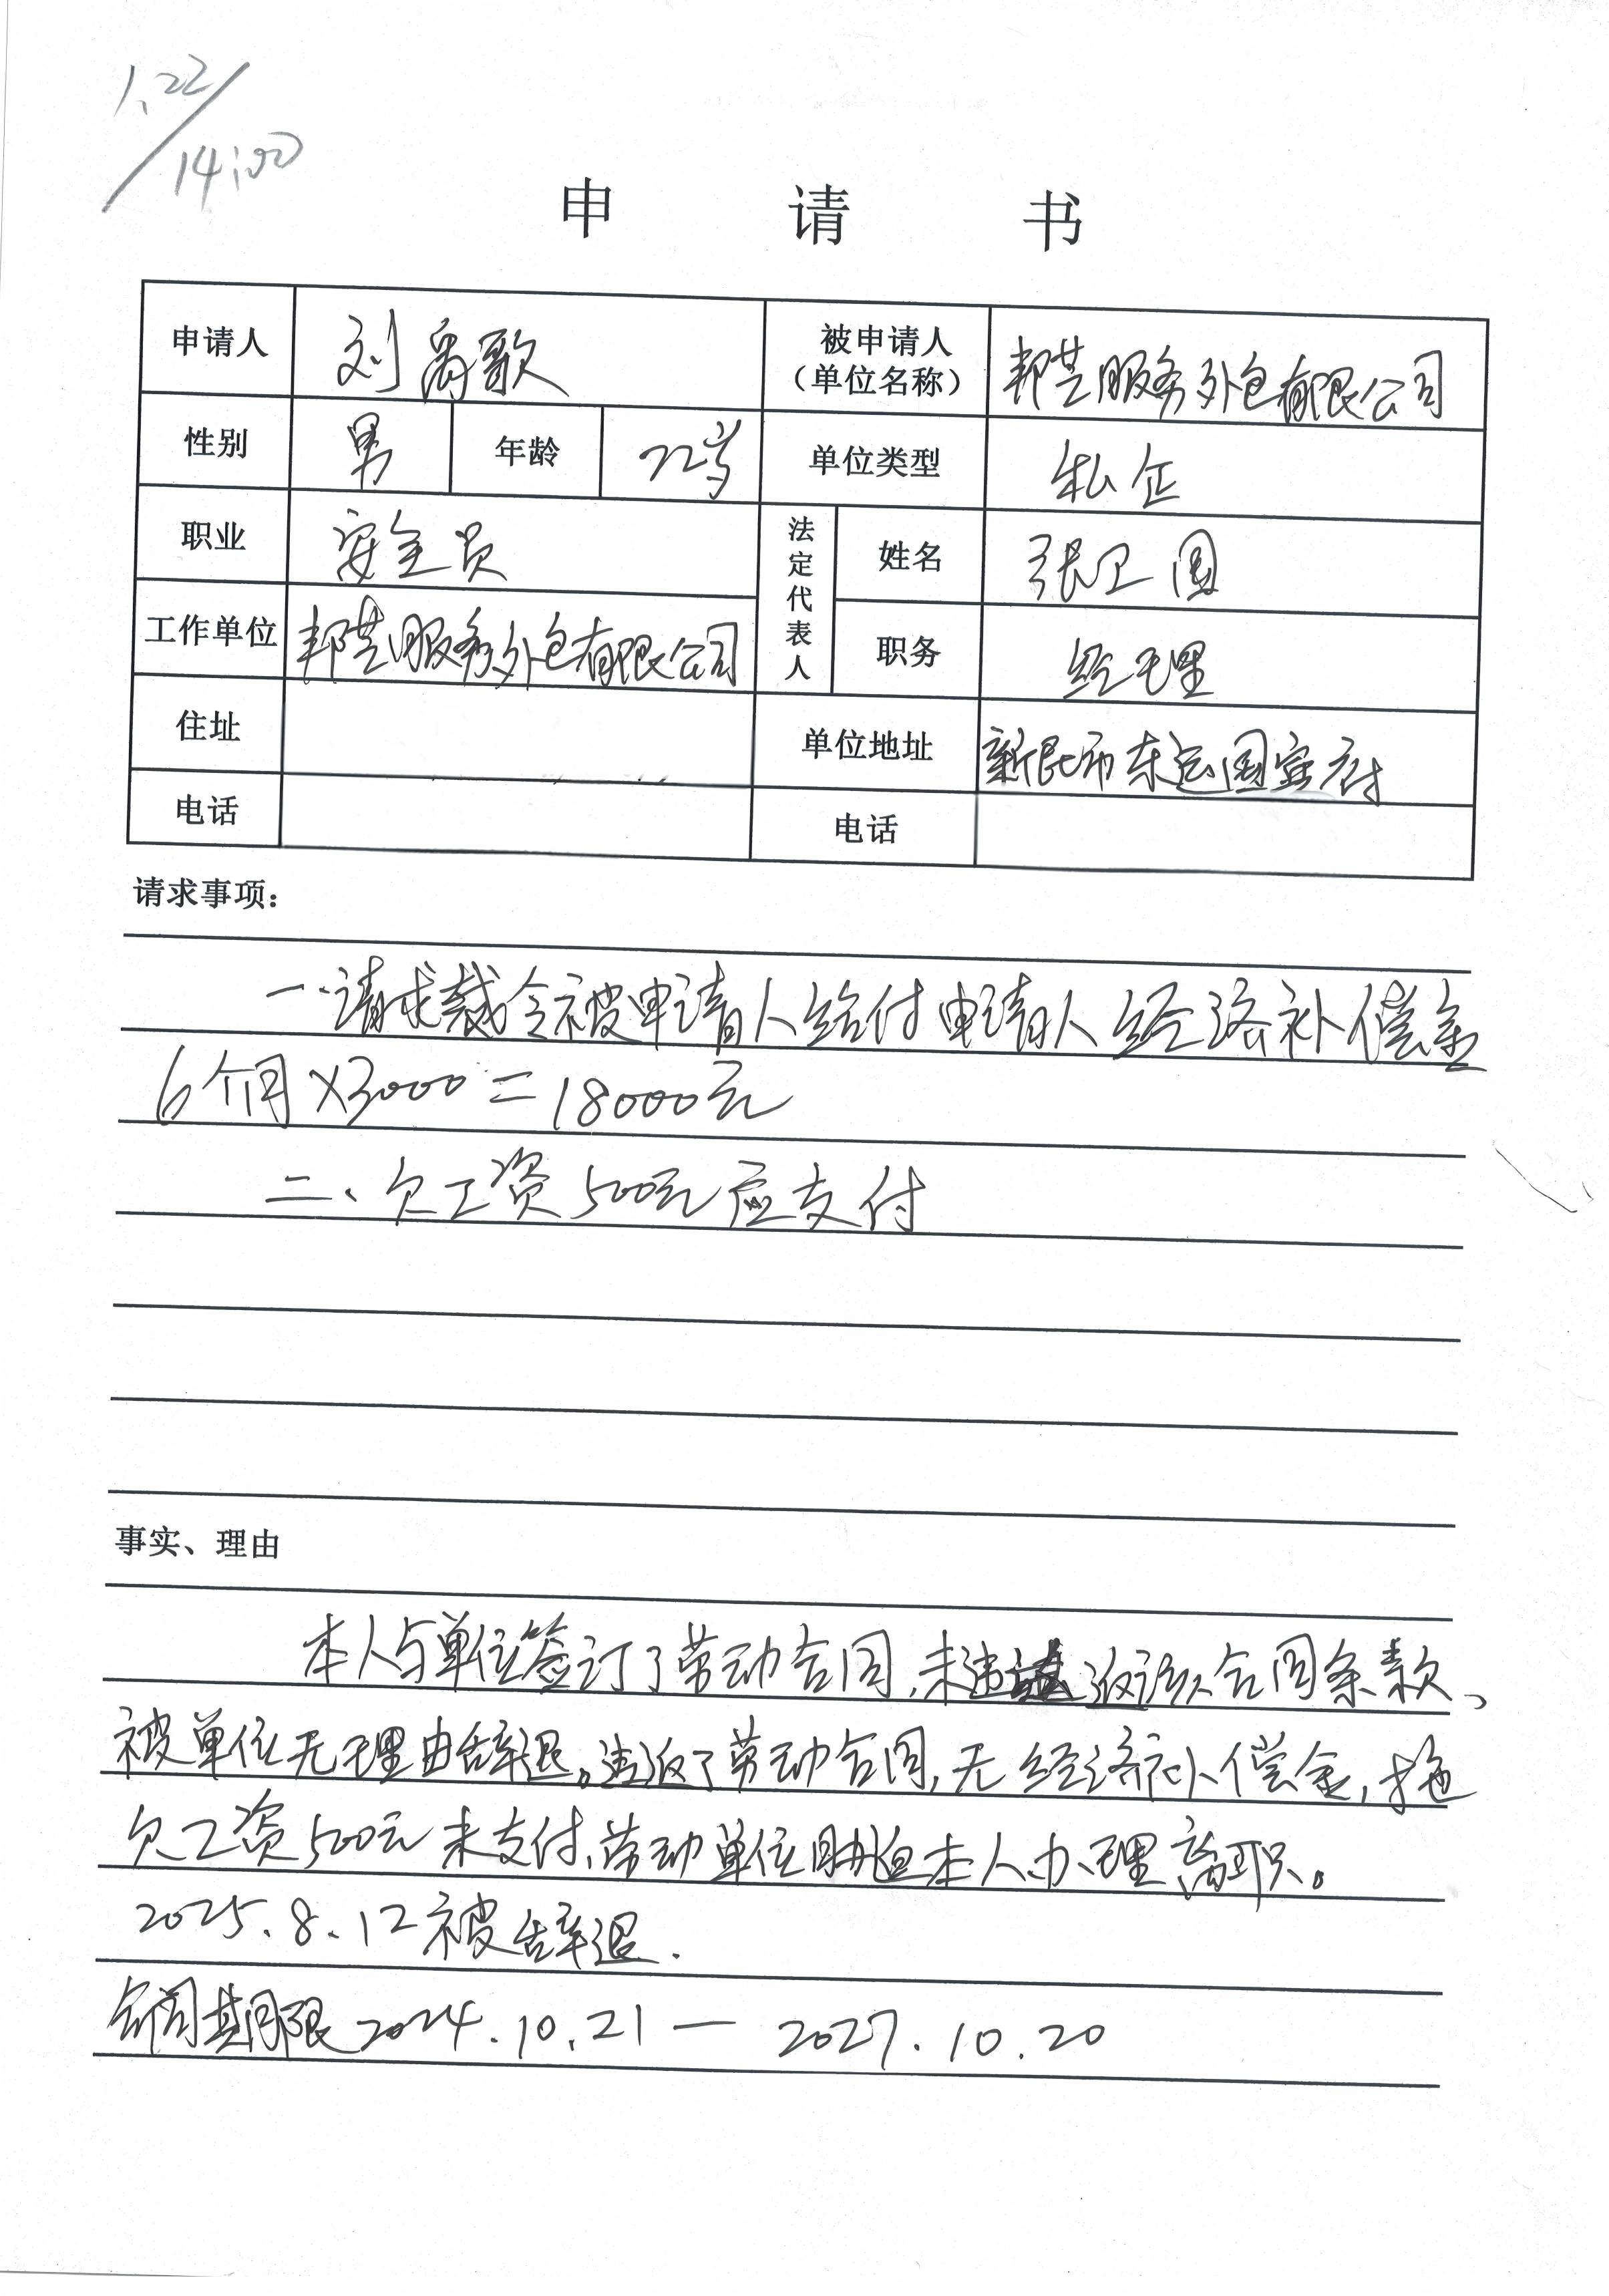 1.22
14:00
申请书
申请人 刘离歌 被申请人（单位名称） 邦芒服务外包有限公司
性别 男 年龄 22岁 单位类型 私企
职业 安全员 法定代表人 姓名 张卫国
工作单位 邦芒服务外包有限公司 职务 经理
住址 单位地址 新民市东运国宾府
电话 电话
请求事项：
一、请求裁令被申请人给付申请人经济补偿金
6个月×3000=18000元
二、欠工资500元应支付
事实、理由
本人与单位签订了劳动合同,未违返该合同条款、
被单位无理由辞退。违返了劳动合同,无经济补偿金,拖
欠工资500元未支付、劳动单位胁迫本人办理离职。
2025.8.12被辞退.
合同期限2024.10.21—2027.10.20